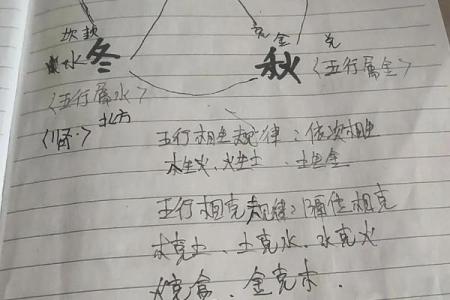 坎 克金 兑
水 冬 秋 〈五行属金〉
〈五行属水〉
北方
五行相生规律：依次相生
木生火、火生土、土生金
五行相克规律：隔位相克
木克土、土克水、水克火
火克金、金克木.